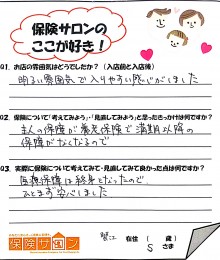 保険サロンの
ここが好き！
Q1. お店の雰囲気はどうでしたか？（入店前と入店後）
明るい雰囲気で入りやすい感じがしました
Q2. 保険について「考えてみよう」・「見直してみよう」と思ったきっかけは何ですか？
主人の保障が養老保険で満期以降の
保障がなくなるので
Q3. 実際に保険について考えてみて・見直してみて良かった点は何ですか？
医療保障は終身となったので、
ひとまず安心しました
保険サロン
蟹江 在住 （ S ） さま